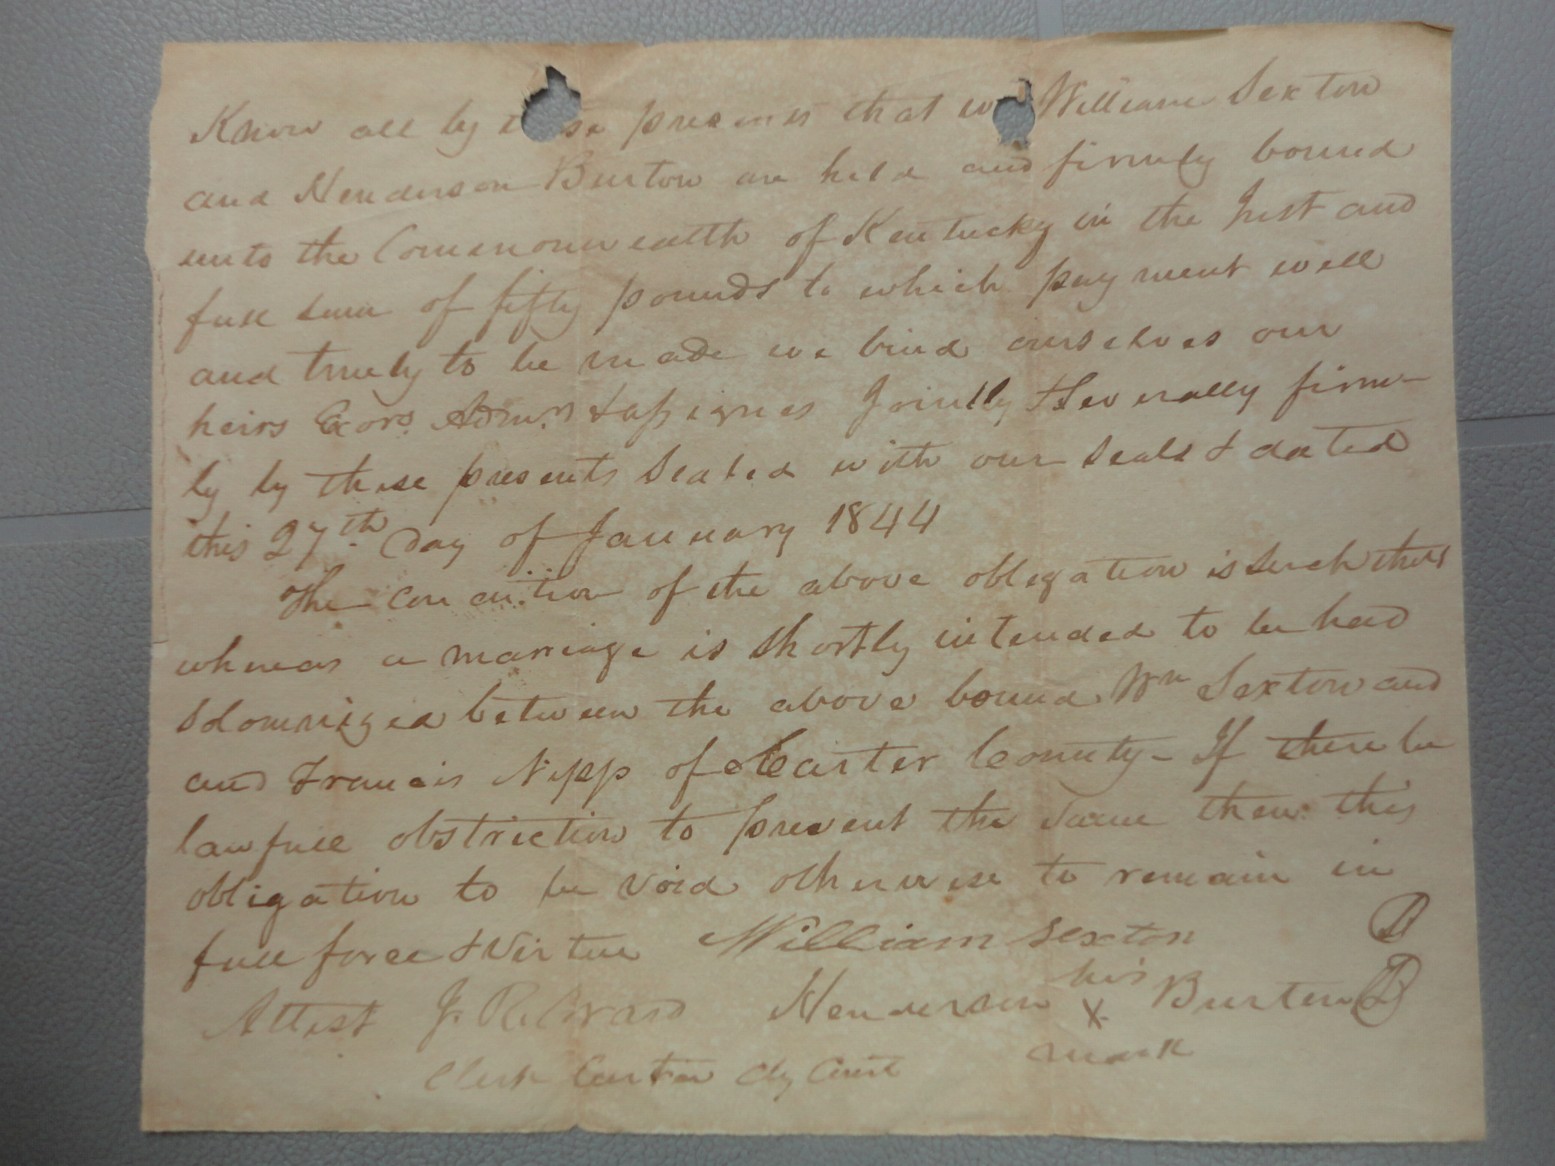 Know all by these presents that we William Sexton
and Henderson Burton are held and firmly bound
unto the Commonwealth of Kentucky in the Just and
full sum of fifty pounds to which payment well
and truely to be made we bind ourselves our
heirs Exors. Admn. & assignes Jointly & Severally firm-
ly by these presents Sealed with our Seals & dated
this 27th Day of January 1844
The condition of the above obligation is Such that
whereas a marriage is Shortly intended to be had
Solomnized between the above bound Wm Sexton and
and Francis Nipp of Carter County - If there be
lawfull obstriction to prevent the Same then this
obligation to be void otherwise to remain in
full force & virtue William Sexton
Attest J. R. Ward Henderson his X mark Burton
Clerk Carter Cty Court